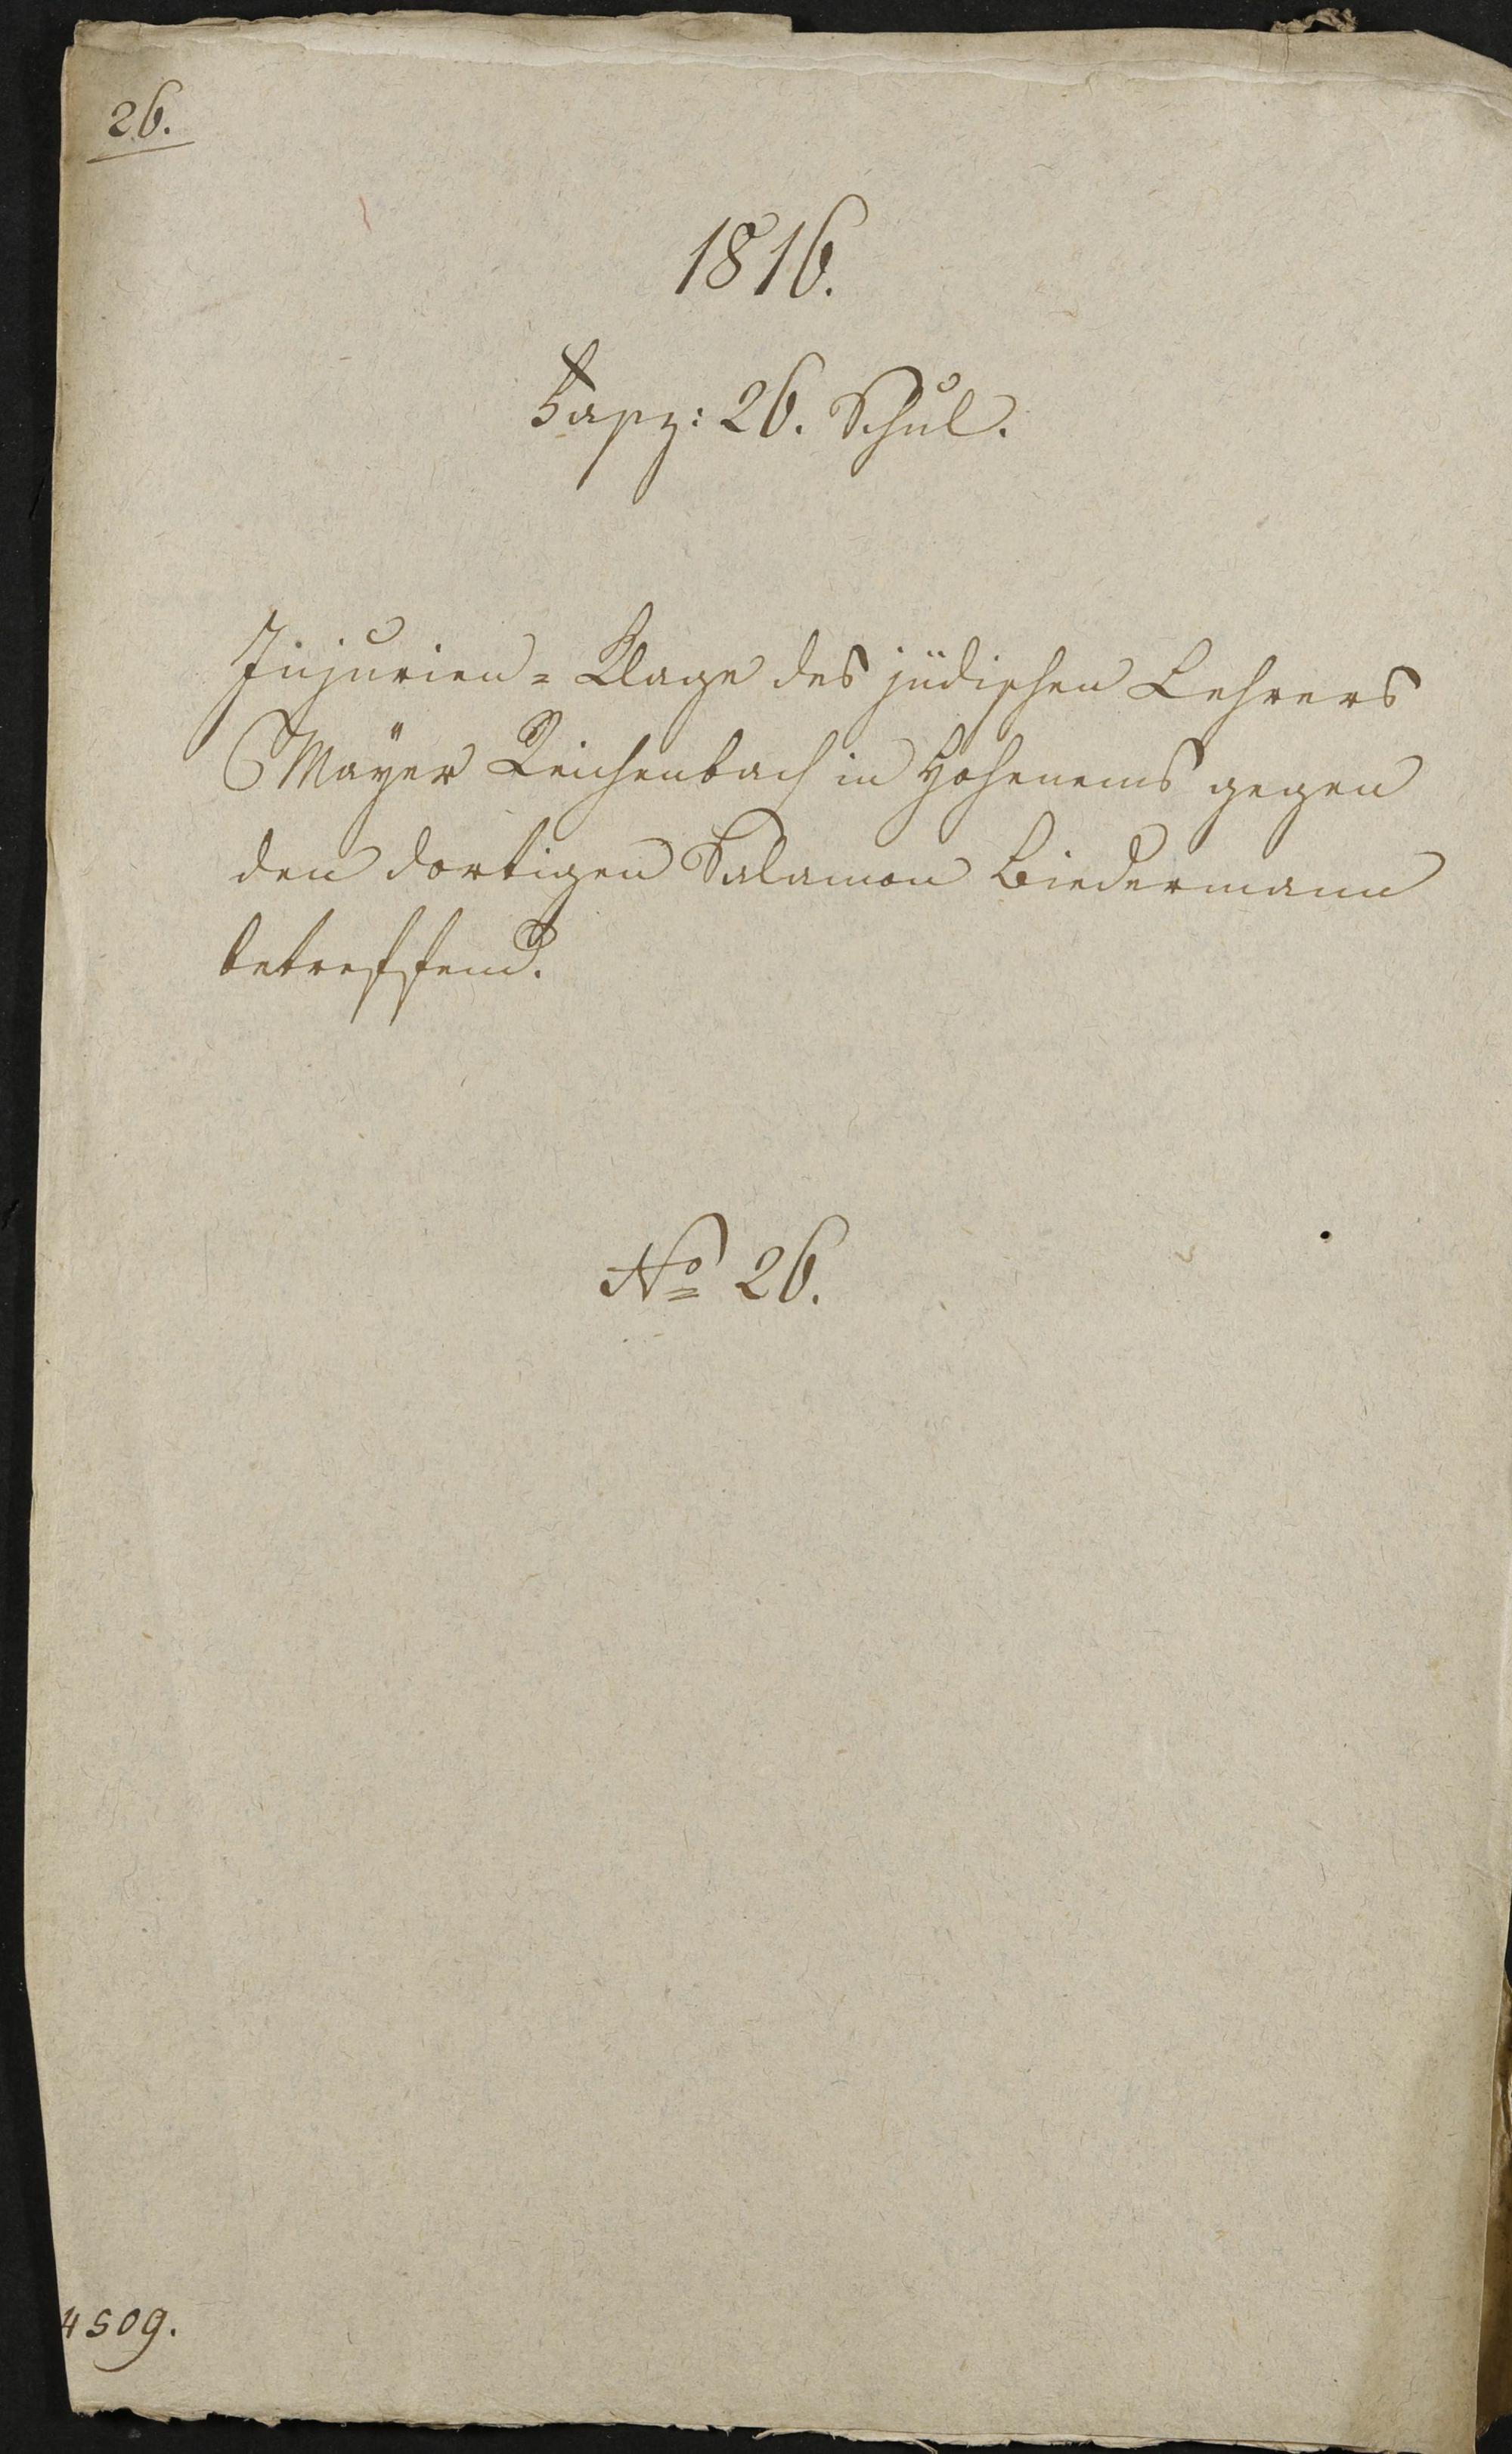 26.
1816.
Fasz: 26. Schul.
Injurien= Klage des jüdischen Lehrers
Mayer Reichenbach in Hohenems gegen
den dortigen Salamon Biedermann
betreffend.
No 26.
4509.